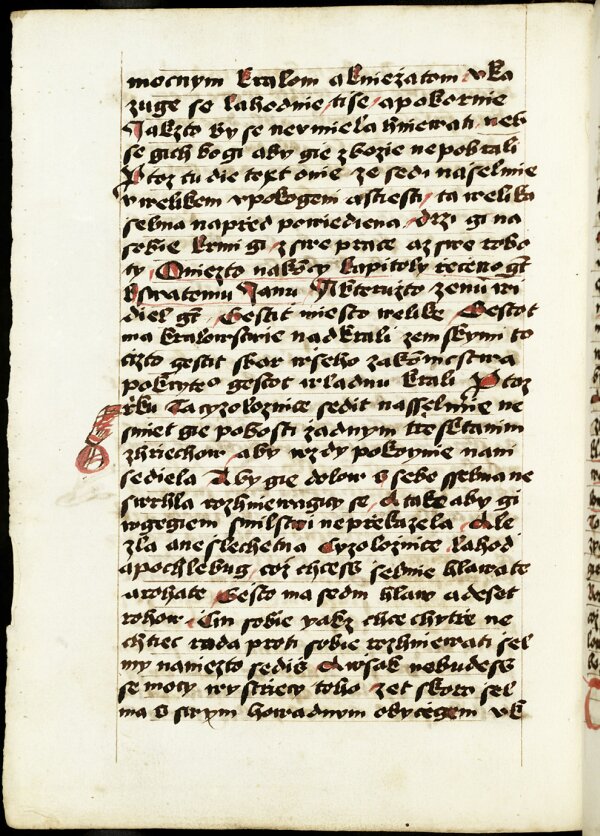 mocnym kralom a kniezatom vka
zuge se lahodnie tise a pokornie
Jakzto by se nevmiela hniewati neb
se gich bogi aby gie zbozie nepobrali
Protoz tu die text onie ze sedi na selmie
v welikem vpokogeni a stiesti ta welika
selma napřed powiediena drzi gi na
sobie krmi gi z swe prace a z swe robo
ty O niezto na koncy kapitoly řeceno gt
k swatomu Janu A kteruzto zenu wi
diel gt Gestit miesto welike Gestot
ma kralowstwie nad krali zemskymi to
cizto gestit skor wseho zakonictwa
pokryte gestot wladnu krali Protoz
řku Ta cyzoloznice sedit na sselmie ne
smiet gie pohosti zadnym tresktanim
z hriechow aby wzdy pokoynie na ni
sediela Aby gie dolow s sebe sselma ne
swrhla rozhniewagic se A take aby gi
w gegiem smilstwi nepřekazela Ale
zla a neslechetna Cyzoloznice lahod
a pochlebug coz chces selmie hlawate
a rohate Gesto ma sedm hlaw a deset
rohow Cin sobie yakz chce chytře ne
chtiec rada proti sobie rozhniewati sel
my na niezto sedis A wsak nebudes
se mocy wystriecy toho zet skoro sel
ma s swym howadnym obycegem vk